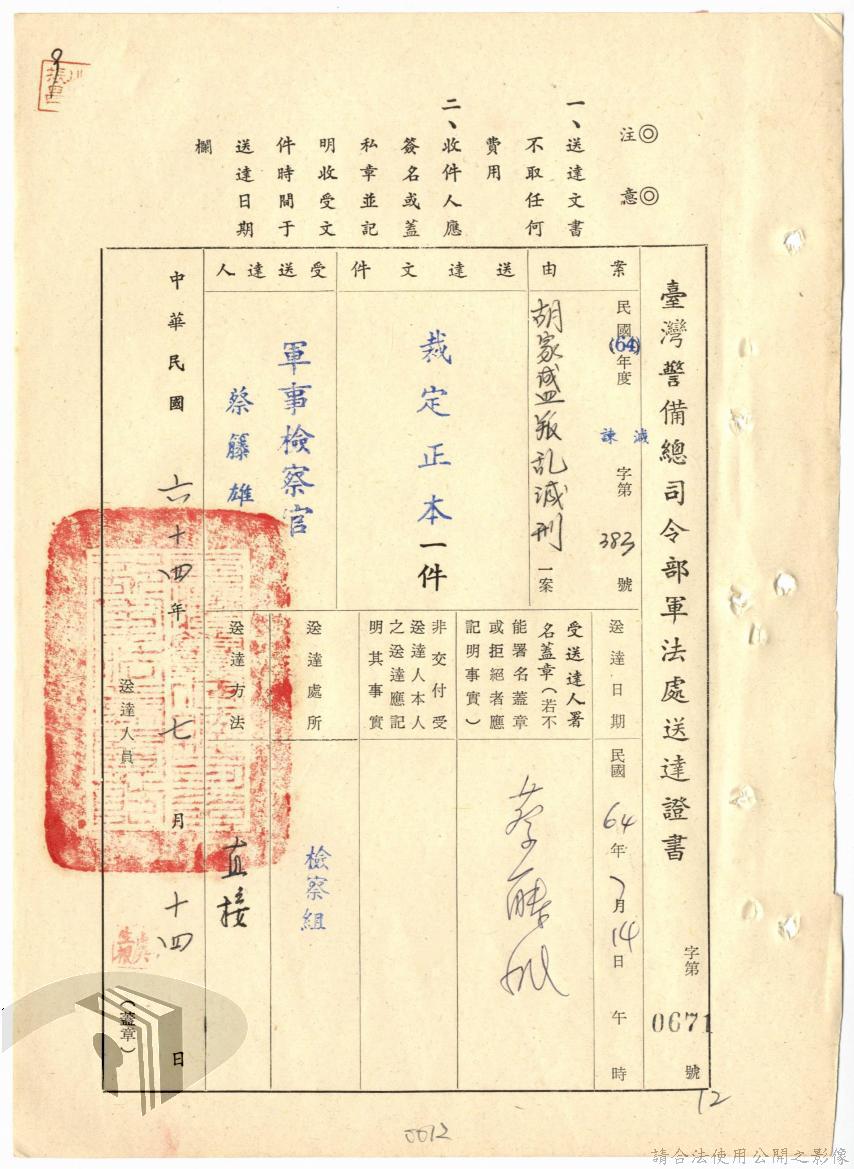 ◎注意◎
一、送達文書
不取任何
費用
二、收件人應
簽名或蓋
私章並記
明收受文
件時間于
送達日期
欄
臺灣警備總司令部軍法處送達證書
字第0671號
案由
民國(64)年度諫減字第383號
胡家盛叛乱減刑一案
送達文件
裁定正本一件
受送達人
軍事檢察官
蔡籐雄
送達日期
民國64年7月14日午時
受送達人署
名蓋章(若不
能署名蓋章
或拒絕者應
記明事實)
非交付受
送達人本人
之送達應記
明其事實
送達處所
檢察組
送達方法
直接
中華民國六十四年七月十四日
送達人員
(蓋章)
12
0012
請合法使用公開之影像